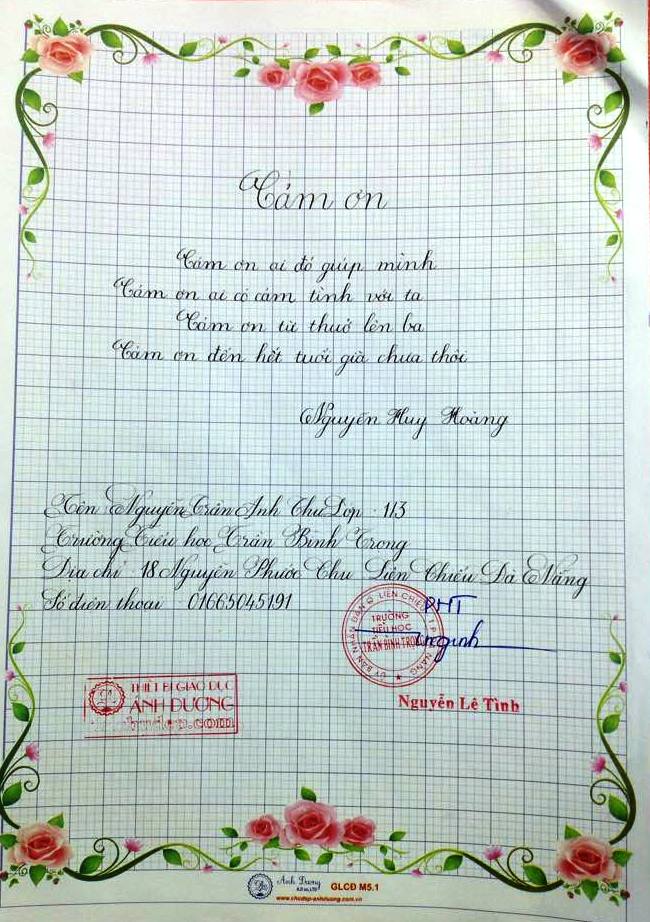 Cảm ơn
Cảm ơn ai đó giúp mình
Cảm ơn ai có cảm tình với ta
Cảm ơn từ thuở lên ba
Cảm ơn đến hết tuổi già chưa thôi
Nguyễn Huy Hoàng
Tên Nguyễn Trần Anh Thư Lớp 1/3
Trường Tiểu học Trần Bình Trọng
Địa chỉ 18 Nguyễn Phước Chu Liên Chiểu Đà Nẵng
Số điện thoại 01665045191
PHT
ỦY BAN NHÂN DÂN Q. LIÊN CHIỂU T.P ĐÀ NẴNG
TRƯỜNG
TIỂU HỌC
TRẦN BÌNH TRỌNG
Nguyễn Lê Tình
THIẾT BỊ GIÁO DỤC
ÁNH DƯƠNG
Ánh Dương
GLCĐ M5.1
www.chcdep-anhduong.com.vn